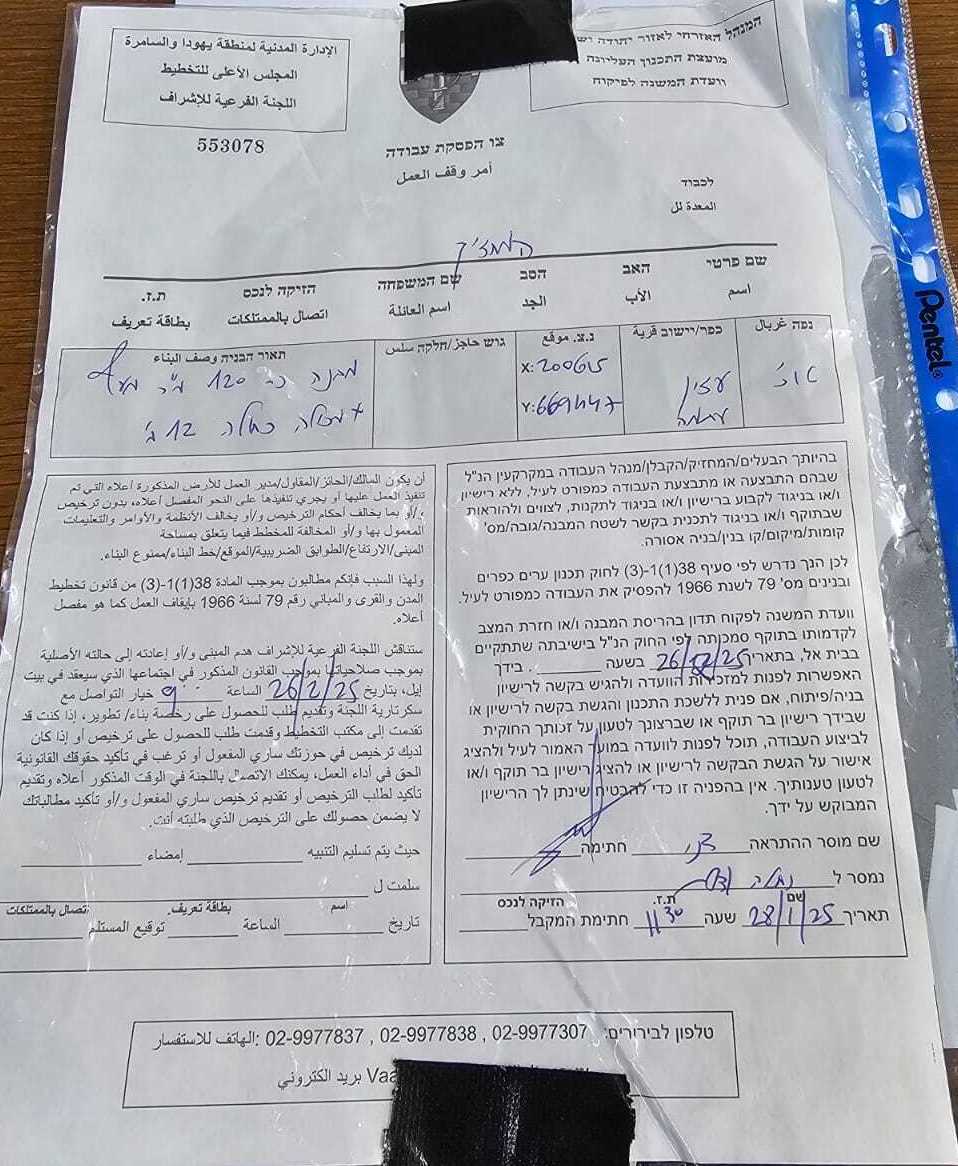 המנהל האזרחי לאזור יהודה
מועצת התכנון העליונה
וועדת המשנה לפיקוח
الإدارة المدنية لمنطقة يهودا والسامرة
المجلس الأعلى للتخطيط
اللجنة الفرعية للإشراف
553078
צו הפסקת עבודה
أمر وقف العمل
לכבוד
المعدة لل
המחזיק
שם פרטי האב הסב שם המשפחה הזיקה לנכס ת.ז.
اسم الأب الجد اسم العائلة اتصال بالممتلكات بطاقة تعريف
נפה غربال כפר/יישוב قرية נ.צ. موقع גוש حاجز/חלקה سلس תאור הבניה وصف البناء
עזון
עתמה
X: 200615
Y: 669447
מבנה כ 120 מ"ר
בהיותך הבעלים/המחזיק/הקבלן/מנהל העבודה במקרקעין הנ"ל
שבהם התבצעה או מתבצעת העבודה כמפורט לעיל, ללא רישיון
ו/או בניגוד לקבוע ברישיון ו/או בניגוד לתקנות, לצווים ולהוראות
שבתוקף ו/או בניגוד לתכנית בקשר לשטח המבנה/גובה/מס'
קומות/מיקום/קו בנין/בניה אסורה.
לכן הנך נדרש לפי סעיף 38(1)-(3) לחוק תכנון ערים כפרים
ובנינים מס' 79 לשנת 1966 להפסיק את העבודה כמפורט לעיל.
וועדת המשנה לפקוח תדון בהריסת המבנה ו/או חזרת המצב
לקדמותו בתוקף סמכותה לפי החוק הנ"ל בישיבתה שתתקיים
בבית אל, בתאריך 26/2/25 בשעה ______. בידך
האפשרות לפנות למזכירות הוועדה ולהגיש בקשה לרישיון
בניה/פיתוח, אם פנית ללשכת התכנון והגשת בקשה לרישיון או
שבידך רישיון בר תוקף או שברצונך לטעון על זכותך החוקית
לביצוע העבודה, תוכל לפנות לוועדה במועד האמור לעיל ולהציג
אישור על הגשת הבקשה לרישיון או להציג רישיון בר תוקף ו/או
לטעון טענותיך. אין בהפניה זו כדי להבטיח שינתן לך הרישיון
המבוקש על ידך.
שם מוסר ההתראה ______ חתימה ______
נמסר ל ______
שם ת.ז. הזיקה לנכס
תאריך 28/1/25 שעה 11 30 חתימת המקבל ______
أن يكون المالك/الحائز/المقاول/مدير العمل للأرض المذكورة أعلاه التي تم
تنفيذ العمل عليها أو يجري تنفيذها على النحو المفصل أعلاه، بدون ترخيص
و/أو بما يخالف أحكام الترخيص و/أو يخالف الأنظمة والأوامر والتعليمات
المعمول بها و/أو المخالفة للمخطط فيما يتعلق بمساحة
المبنى/الارتفاع/الطوابق الضريبية/الموقع/خط البناء/ممنوع البناء.
ولهذا السبب فإنكم مطالبون بموجب المادة 38(1)-(3) من قانون تخطيط
المدن والقرى والمباني رقم 79 لسنة 1966 بإيقاف العمل كما هو مفصل
أعلاه.
ستناقش اللجنة الفرعية للإشراف هدم المبنى و/أو إعادته إلى حالته الأصلية
بموجب صلاحياتها بموجب القانون المذكور في اجتماعها الذي سيعقد في بيت
إيل، بتاريخ 26/2/25 الساعة 9 00 خيار التواصل مع
سكرتارية اللجنة وتقديم طلب للحصول على رخصة بناء/ تطوير، إذا كنت قد
تقدمت إلى مكتب التخطيط وقدمت طلب للحصول على ترخيص أو إذا كان
لديك ترخيص في حوزتك ساري المفعول أو ترغب في تأكيد حقوقك القانونية
الحق في أداء العمل، يمكنك الاتصال باللجنة في الوقت المذكور أعلاه وتقديم
تأكيد لطلب الترخيص أو تقديم ترخيص ساري المفعول و/أو تأكيد مطالباتك
لا يضمن حصولك على الترخيص الذي طلبته أنت.
حيث يتم تسليم التنبيه ______ إمضاء ______
سلمت ل ______
اسم بطاقة تعريف. اتصال بالممتلكات
تاريخ ______ الساعة ______ توقيع المستلم ______
טלפון לבירורים: 02-9977307 , 02-9977838 , 02-9977837 :الهاتف للاستفسار
Vaa بريد الكتروني
Pentel